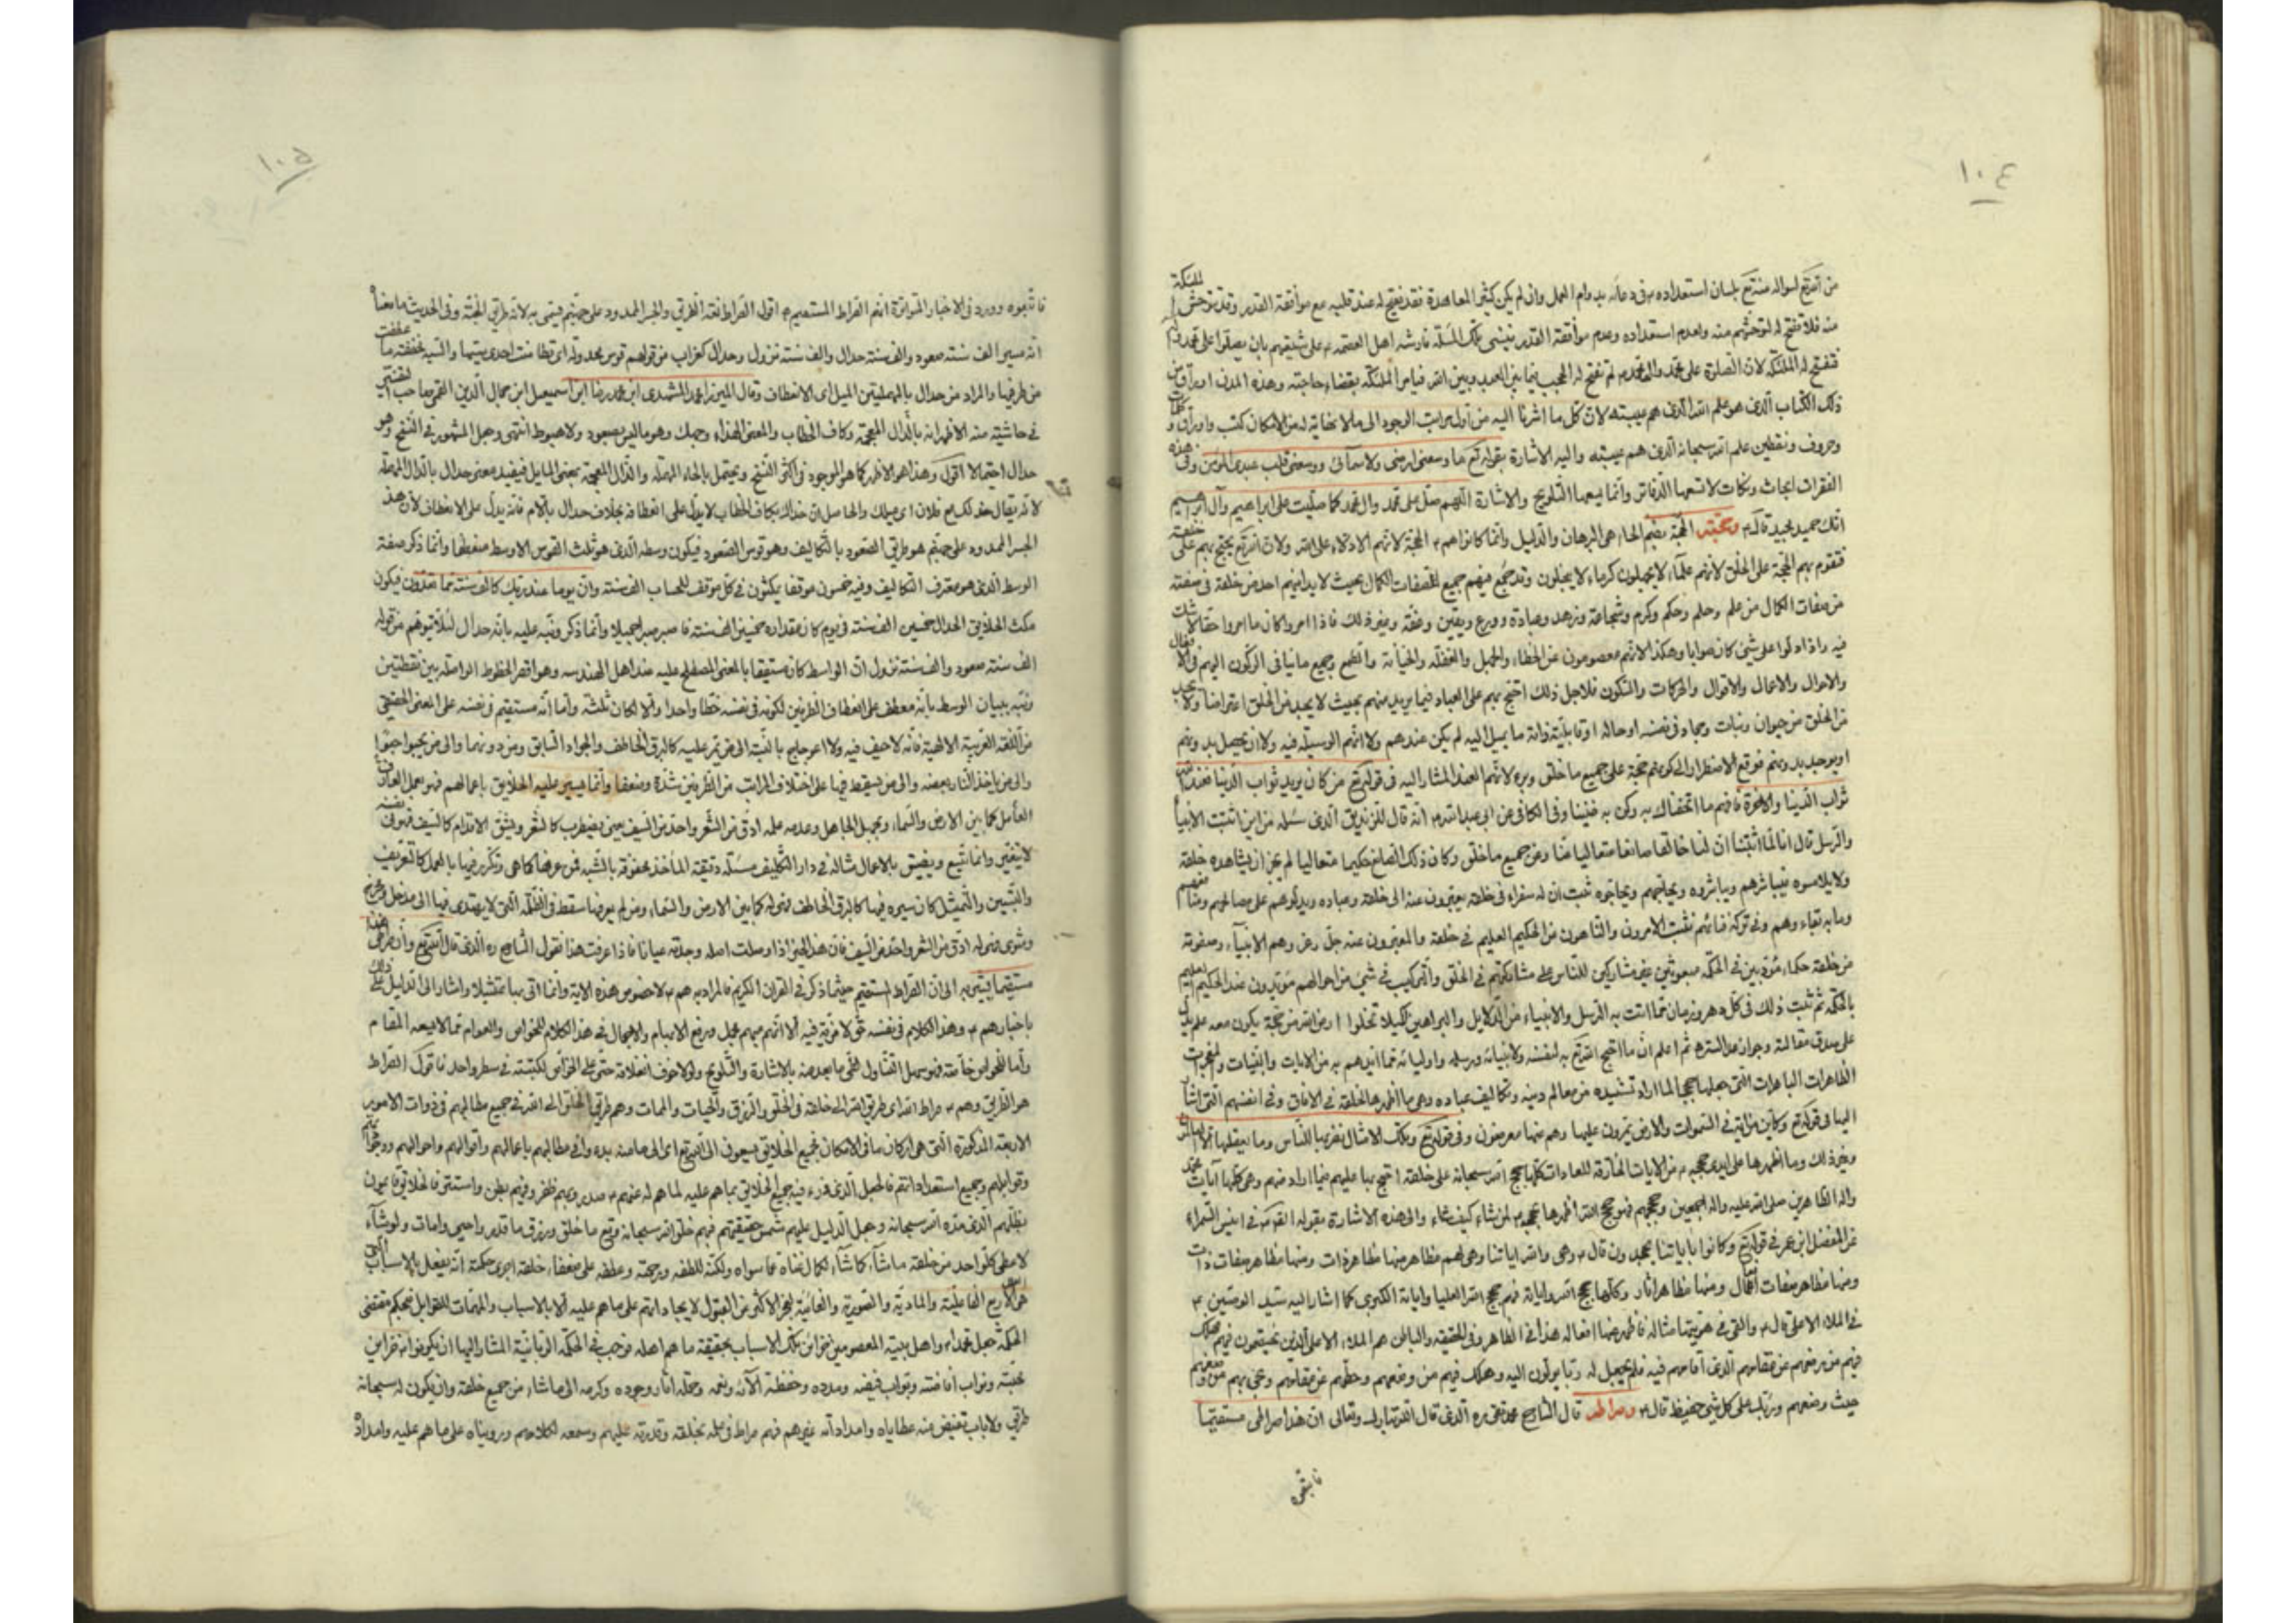 ١٠٤
من
منه فلا تفتح له لتوحشهم منه ولعدم استعداده وعدم موافقة القدر فينسى تلك المسئلة فارشد اهل العصمة ع على شيعتهم بان يصلوا على محمد وآله
فتفتح له المسئلة لان الصلوة على محمد وآله لم تفتح له الحجب فيما بين العبد وبين الله بقضاء حاجته وهذه المدن اوراق من
ذلك الكتاب الذي هو علم الله الذي هم عيبته لان كل ما اشرنا اليه من اول مراتب الوجود الى ما لا نهاية له من الامكان كتب واوراق وكلمات
وحروف ونقطين علم الله سبحانه الذي هم عيبته واليه الاشارة بقوله تع ما وسعني ارضي ولا سمائي ووسعني قلب عبدي المؤمن وفي هذه
الفقرات ابحاث ونكات لا تسعها الدفاتر وانما يسعها التلويح والاشارة اللهم صل على محمد وآل محمد كما صليت على ابراهيم وآل ابراهيم
انك حميد مجيد قال ع وحجته الحجة بضم الحاء هي البرهان والدليل وانما كانوا هم ع الحجة لانهم الادلاء على الله ولان الله تع يحتج بهم على خلقه
فتقوم بهم الحجة على الخلق لانهم علماء لا يجهلون كرماء لا يبخلون وقد جمع فيهم جميع صفات الكمال بحيث لا يدانيهم احد من خلقه في صفة
من صفات الكمال من علم وحلم وحكم وكرم وشجاعة وزهد وعبادة وورع ويقين وعفة وغير ذلك فاذا امروا كان ما امروا حقا لا شك
فيه واذا دلوا على شئ كان صوابا وهكذا لانهم معصومون عن الخطاء والجهل والغفلة والخيانة والطمع وجميع ما ينافي الركون اليهم في الافعال
والاحوال والاعمال والاقوال والحركات والسكون فلاجل ذلك احتج بهم على العباد فيما يريد منهم بحيث لا يجد من الخلق اعتراضا ولا يجد
من الخلق من حيوان ونبات وجماد في نفسه او حاله او قابليته وانه ما يميل اليه لم يكن عندهم ولا انهم الوسيلة فيه ولا ان يحصل بدونهم
او يوجد بدونهم فوقع الاضطرار الى كونهم حجة على جميع ما خلق وبرء لانهم العند المشار اليه في قوله تع من كان يريد ثواب الدنيا فعند الله
ثواب الدنيا والاخرة فافهم ما اتحفناك به وكن به ضنينا وفي الكافي عن ابي عبد الله ع انه قال للزنديق الذي سئله من اين اثبت الانبياء
والرسل قال انا لما اثبتنا ان لنا خالقا صانعا متعاليا عنا وعن جميع ما خلق وكان ذلك الصانع حكيما متعاليا لم يجز ان يشاهده خلقه
ولا يلامسوه فيباشرهم ويباشروه ويحاجهم ويحاجوه ثبت ان له سفراء في خلقه يعبرون عنه الى خلقه وعباده ويدلونهم على مصالحهم ومنافعهم
وما به بقاءهم وفي تركه فناؤهم فثبت الامرون والناهون عن الحكيم العليم في خلقه والمعبرون عنه جل وعز وهم الانبياء وصفوته
من خلقه حكماء مؤدبين في الحكمة مبعوثين بها غير مشاركين للناس على مشاركتهم في الخلق والتركيب في شئ من احوالهم مؤيدون عند الحكيم العليم
بالحكمة ثم ثبت ذلك في كل دهر وزمان مما اتت به الرسل والانبياء من الدلايل والبراهين لكيلا تخلوا ارض الله من حجة يكون معه علم يدل
على صدق مقالته وجواز عدالته ثم اعلم ان ما احتج الله تع به لنفسه ولانبيائه ورسله واوليائه مما ايدهم به من الايات والبينات والمعجزات
الظاهرات الباهرات التي جعلها حججا لما اراد تشييده من معالم دينه وتكاليف عباده وهي ما اظهرها لخلقه في الافاق وفي انفسهم التي اشار
اليها في قوله تع وكاين من اية في السموات والارض يمرون عليها وهم عنها معرضون وفي قوله تع وتلك الامثال نضربها للناس وما يعقلها الا العالمون
وغير ذلك وما اظهرها على ايدي حججه ع من الايات الخارقة للعادات كلها حجج الله سبحانه على خلقه احتج بها عليهم فيما اراد منهم وهي كلها آيات محمد
وآله الطاهرين صلى الله عليه وآله اجمعين وحججهم فهو حجج الله اظهرها بحججه ع لمن شاء كيف شاء والى هذه الاشارة بقوله
في قوله تع وكانوا باياتنا يجحدون قال ع وهي والله اياتنا وهي لهم مظاهر منها مظاهر ذات ومنها مظاهر صفات ذات
ومنها مظاهر صفات افعال ومنها مظاهر اثار وكلها حجج الله واياته فهم حجج الله العليا واياته الكبرى كما اشار اليه سيد الوصيين ع
في الملاء الاعلى قال ع والقى في هويتها مثاله فاظهر عنها افعاله هذا في الظاهر وفي الحقيقة والباطن هم الملاء الاعلى الذين يختصمون فيهم فهلك
فيهم من رفعهم عن مقامهم الذي اقامهم فيه فلم يجعل له ربا يؤلون اليه وهلك فيهم من وضعهم وحطهم عن مقامهم ونجى بهم من وضعهم
حيث وضعهم وربك على كل شئ حفيظ قال ع وصراطه قال الشارح محمد تقي ره الذي قال الله تبارك وتعالى ان هذا صراطي مستقيما
فاتبعوه
١٠٥
فاتبعوه وورد في الاخبار المتواترة انهم الصراط المستقيم ع اقول الصراط لغة الطريق والجسر الممدود على جهنم فيسمى به لانه طريق الجنة وفي الحديث ما معناه
انه مسير الف سنة صعود والف سنة حدال والف سنة نزول وحدال كغراب من قولهم قوس محدلة اي تطامنت احدى سيتيها والسية مخففة ما عطفت
من طرفيها والمراد من حدال بالمهملتين الميل اي الانعطاف وقال الميرزا محمد المشهدي ابن محمد رضا ابن اسمعيل ابن جمال الدين القمي صاحب التفسير
في حاشيته منه الاظهر انه بالذال المعجمة وكاف الخطاب والمعنى الحذاء وجهك وهو ما ليس بصعود ولا هبوط انتهى وجعل المشهور في النسخ وهو
حدال احتمالا اقول وهذا هو الاظهر كما هو الموجود في اكثر النسخ ويحتمل بالحاء المهملة والذال المعجمة بمعنى المايل فيفيد معنى حدال بالدال المهملة
لانه يقال مع فلان اي ميلك والحاصل ان حذاك بكاف الخطاب لا يدل على انعطافه بخلاف حدال باللام فانه يدل على الانعطاف لان هذا
الجسر الممدود على جهنم هو طريق الصعود بالتكاليف وهو قوس الصعود فيكون وسطه الذي هو ثلث القوس الاوسط منعطفا وانما ذكر صفة
الوسط الذي هو التكاليف وفيه خمسون موقفا يمكثون في كل موقف للحساب الف سنة وان يوما عند ربك كالف سنة مما تعدون فيكون
مكث الخلايق الحدال خمسين الف سنة في يوم كان مقداره خمسين الف سنة فاصبر صبرا جميلا وانما ذكر ونبه عليه بانه حدال لئلا يتوهم من قوله
الف سنة صعود والف سنة نزول ان الواسط كان مستقيما بالمعنى المصطلح عليه عند اهل الهندسه وهو اقصر الخطوط الواصلة بين نقطتين
ونبه ببيان الوسط بانه منعطف على انعطاف الطرفين لكونه في نفسه خطا واحدا والا لكان ثلثة واما انه مستقيم في نفسه على المعنى الحقيقي
من اللغة العربية الالهية فانه لا حيف فيه ولا اعوجاج بالنسبة الى من يمر عليه كالبرق الخاطف والجواد السابق ومن دونهما والى من يحبوا حبوا
والى من ياخذ النار بعضه والى من يسقط فيها على اختلاف المراتب من الطرفين شدة وضعفا وانما يسير عليه الخلايق باعمالهم فهو بعمل العارف
العامل كما بين الارض والسماء وبجهل الجاهل وعدم عمله ادق من الشعر واحد من السيف يعني يضطرب كالشعر ويشق الاقدام كالسيف فهو في نفسه
لا يتغير وانما يتسع ويضيق بالاعمال مثاله في دار التكليف مسئلة دقيقة المأخذ محفوفة بالشبه فمن عرفها كما هي وتكرر فيها بالعمل كالتعريف
والتبيين والتمثيل كان سيره فيها كالبرق الخاطف وهي له كما بين الارض والسماء ومن لم يعرفها سقط في الظلمة التي لا يهتدي فيها الى مدخل ومخرج
وشوى وهي له ادق من الشعر واحد من السيف فاذا عرفت هذا فقول الشارح ره الذي قال الله تع وان هذا صراطي
مستقيما يشير به الى ان الصراط المستقيم حيثما ذكر في القران الكريم فالمراد به هم ع لا خصوص هذه الاية وانما اتى بها تمثيلا واشار الى الدليل على ذلك
باخبارهم ع وهذا الكلام في نفسه حق لا مرية فيه الا انه مبهم مجمل ورفع الابهام والاجمال في هذا الكلام للخواص والعوام مما لا يسعه المقام
واما للخواص خاصة فهو سهل التناول بالاشارة والتلويح ولولا خوف اغلاقه حتى على الخواص لكتبته في سطر واحد فاقول الصراط
هو الطريق وهم ع صراط الله اي طريق الله الى خلقه في الخلق والرزق والحيات والممات وهم طريق الخلق الى الله في جميع مطالبهم في ذوات الامور
الاربعة المذكورة التي هي اركان ما في الامكان فجميع الخلايق يسعون الى الله تع اي الى ما منه بدوا في مطالبهم باعمالهم واقوالهم واحوالهم ووجوداتهم
وقوابلهم وجميع استعداداتهم فالحبل الذي فيه جميع الخلايق بما هم عليه لما هم له عنهم ع صدر وبهم ظهر وفيهم بطن واستتر فالخلايق قائمون
بظلهم الذي مده الله سبحانه وجعل الدليل عليهم شمس حقيقتهم فبهم خلق الله سبحانه جميع ما خلق ورزق ما قدر واحيى وامات ولو شاء
لاعطى كل واحد من خلقه ما شاء كما شاء لكمال غناه عما سواه ولكنه للطفه ورحمته وعطفه على ضعفاء خلقه اجرى حكمته انه يفعل بالاسباب التي
هي الاربع الفاعلية والمادية والصورية والغائية لعجز الاكثر عن القبول لايجاداتهم على ما هم عليه الا بالاسباب والمتممات للقوابل فبحكم مقتضى
الحكمة جعل محمدا ص واهل بيته المعصومين خزائن تلك الاسباب بحقيقة ما هم اهله فوجب في الحكمة الربانية المشار اليها ان يكونوا خزائن
غيبه وابواب افاضته وبواب فيضه ومدده وحفظة آلائه ونعمه وحملة اثار وجوده وكرمه الى ما شاء من جميع خلقه وان يكون له سبحانه
طريق ولا باب تفيض منه عطاياه وامداداته غيرهم فهم صراط في علمه بخلقه وقدرته عليهم وسمعه لكلامهم ورؤيتاه على ما هم عليه وامداده